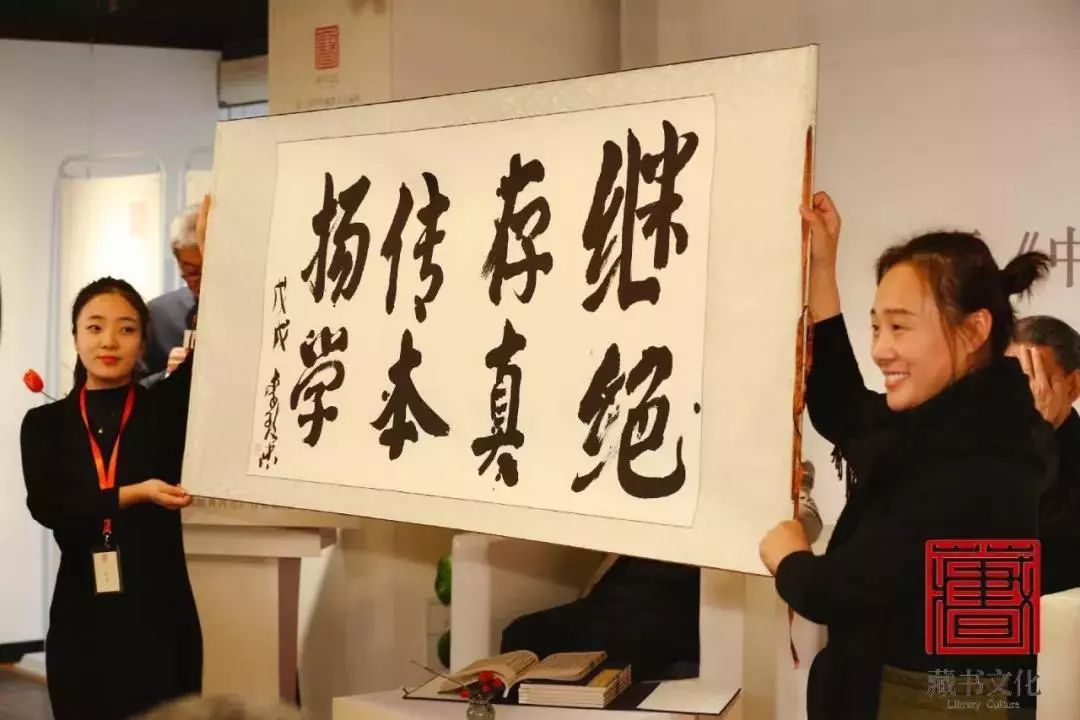 继绝
存真
传本
扬学
戊戌 李致忠
《中
藏书文化
Library Culture